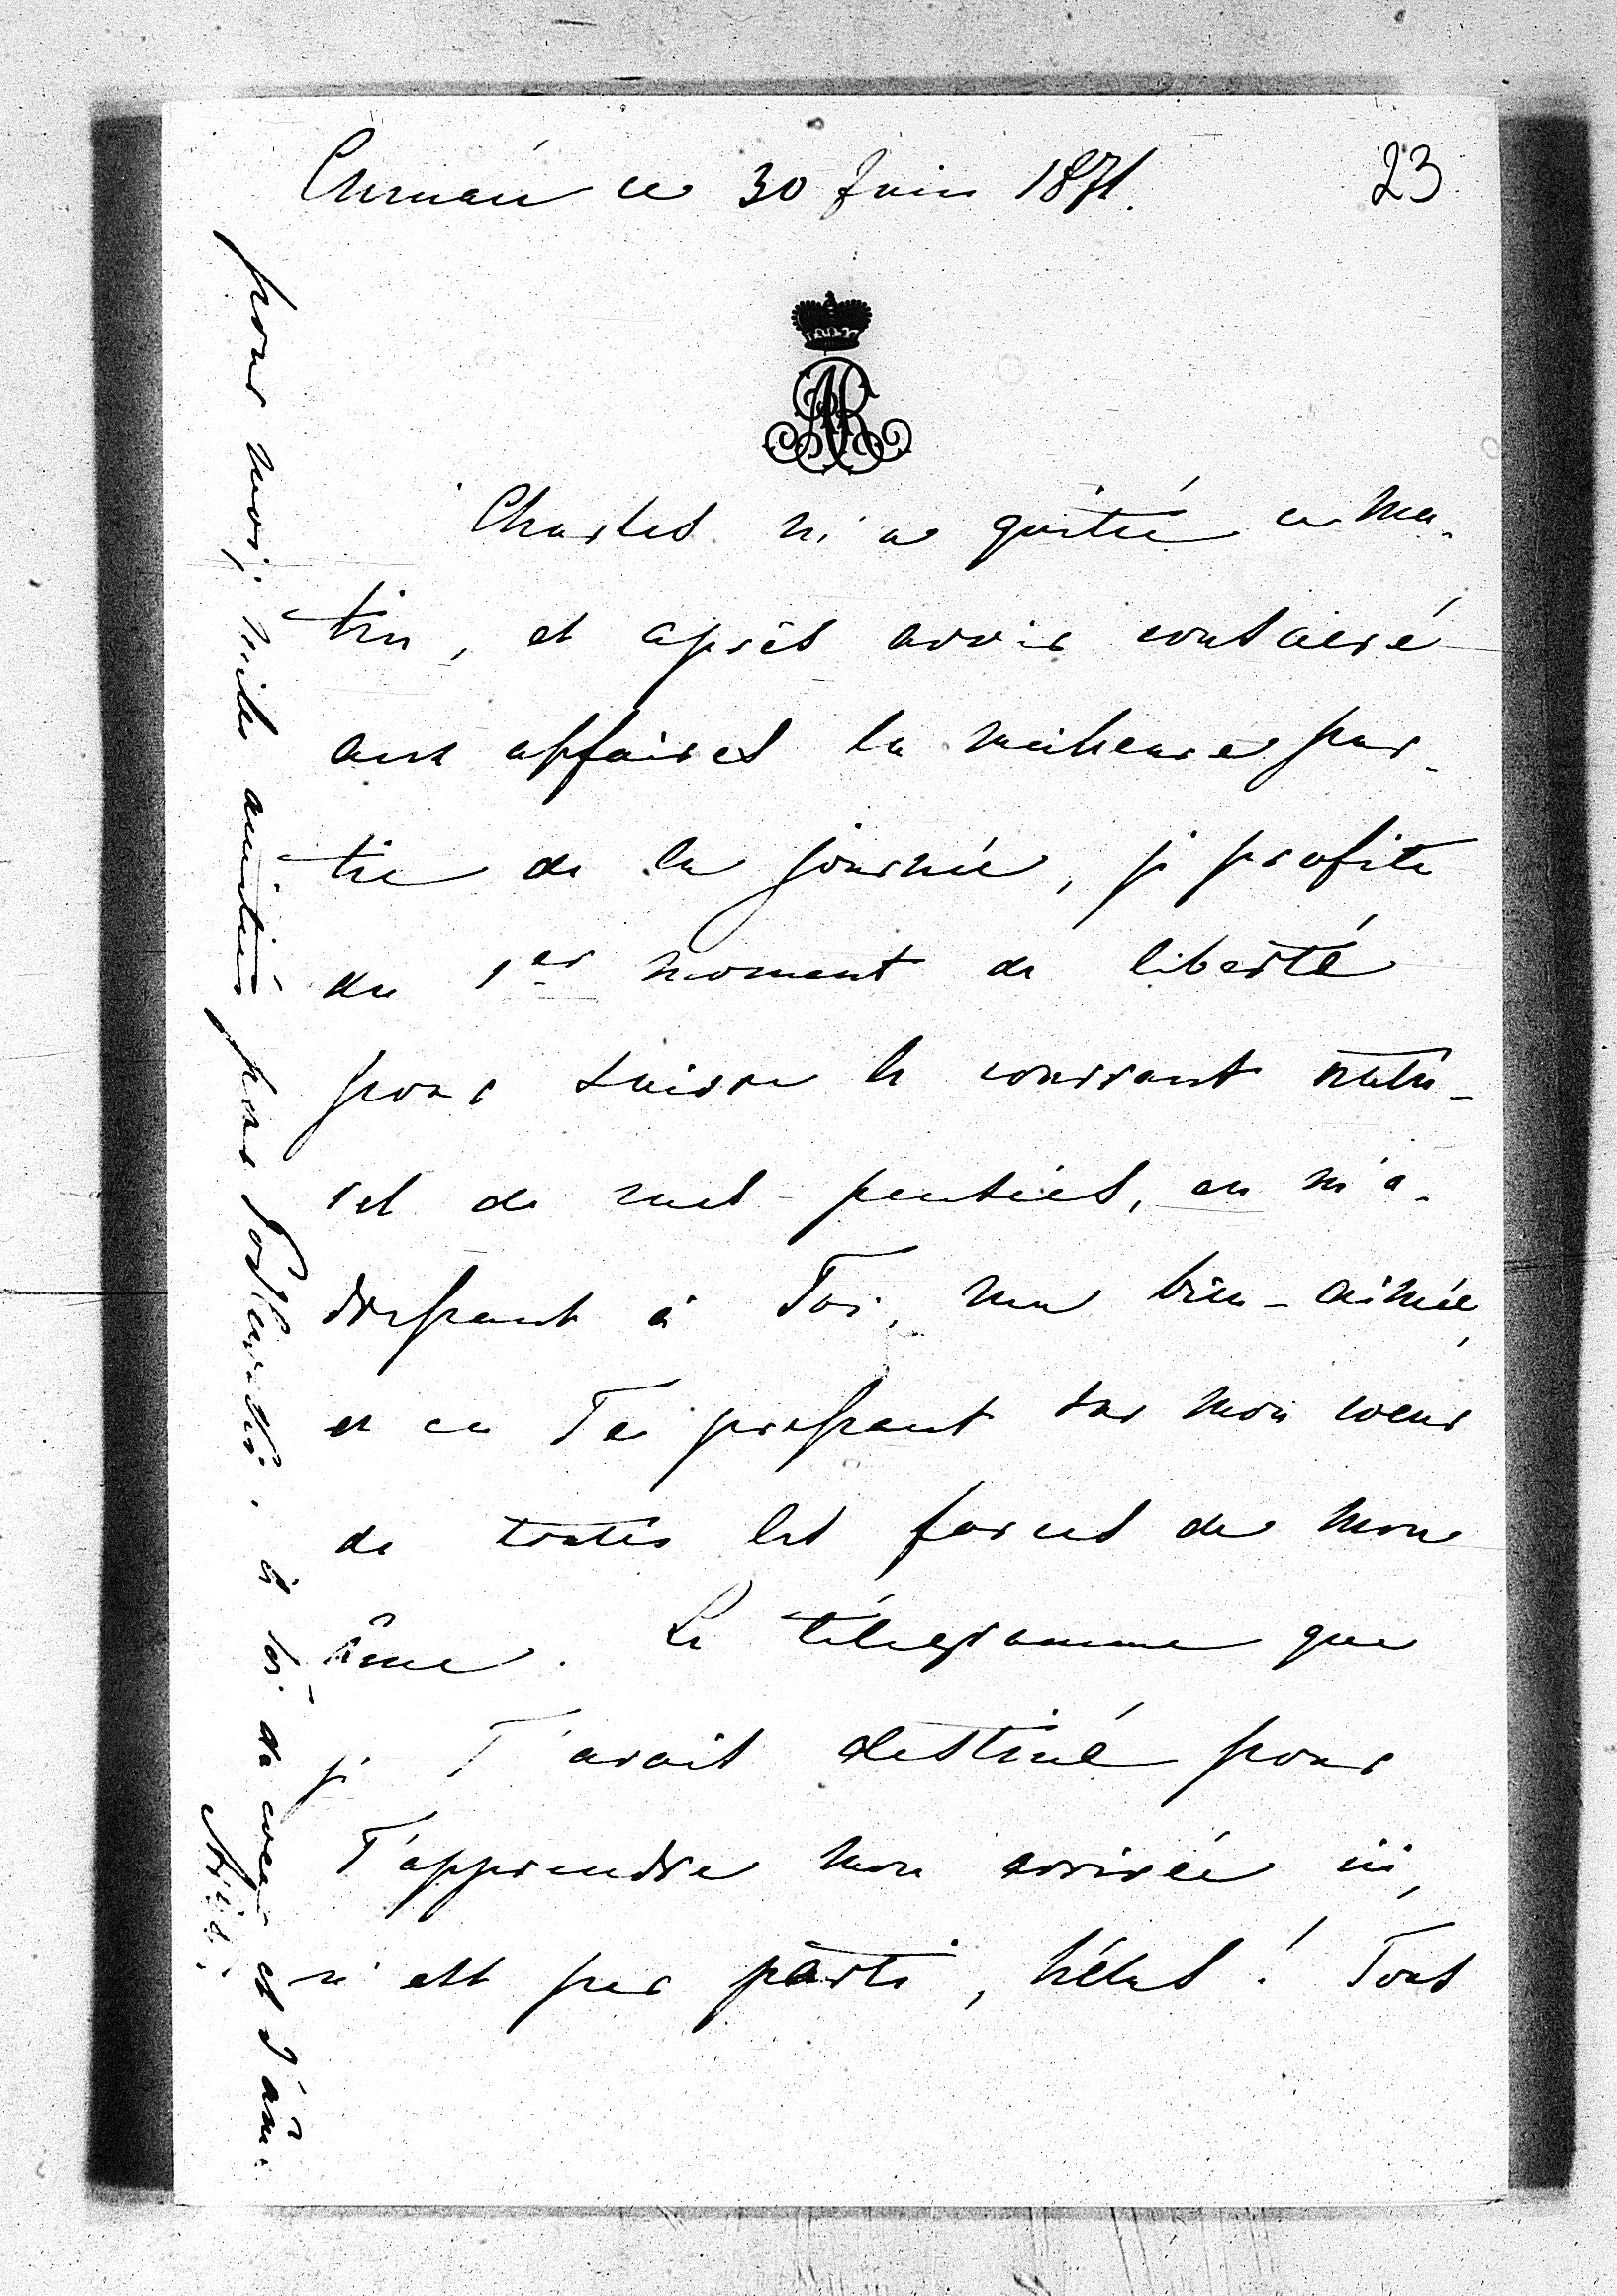 ce 30 Juin 1871.
23
Charles m'a quitté ce ma-
tin, et après avoir consacré
aux affaires la meilleure par-
tie de la journée, je profite
du 1er moment de liberté
pour suivre le courrant natu-
rel de mes pensées, en m'a-
dressant à Toi, ma bien-aimée,
et en Te pressant sur mon coeur
de toutes les forces de mon
âme. Le télégramme que
je T'avais destiné pour
T'apprendre mon arrivée ici,
n'est pas parti, hélas! Tout
pour moi; milles amitiés pour à toi de coeur et d'âme.